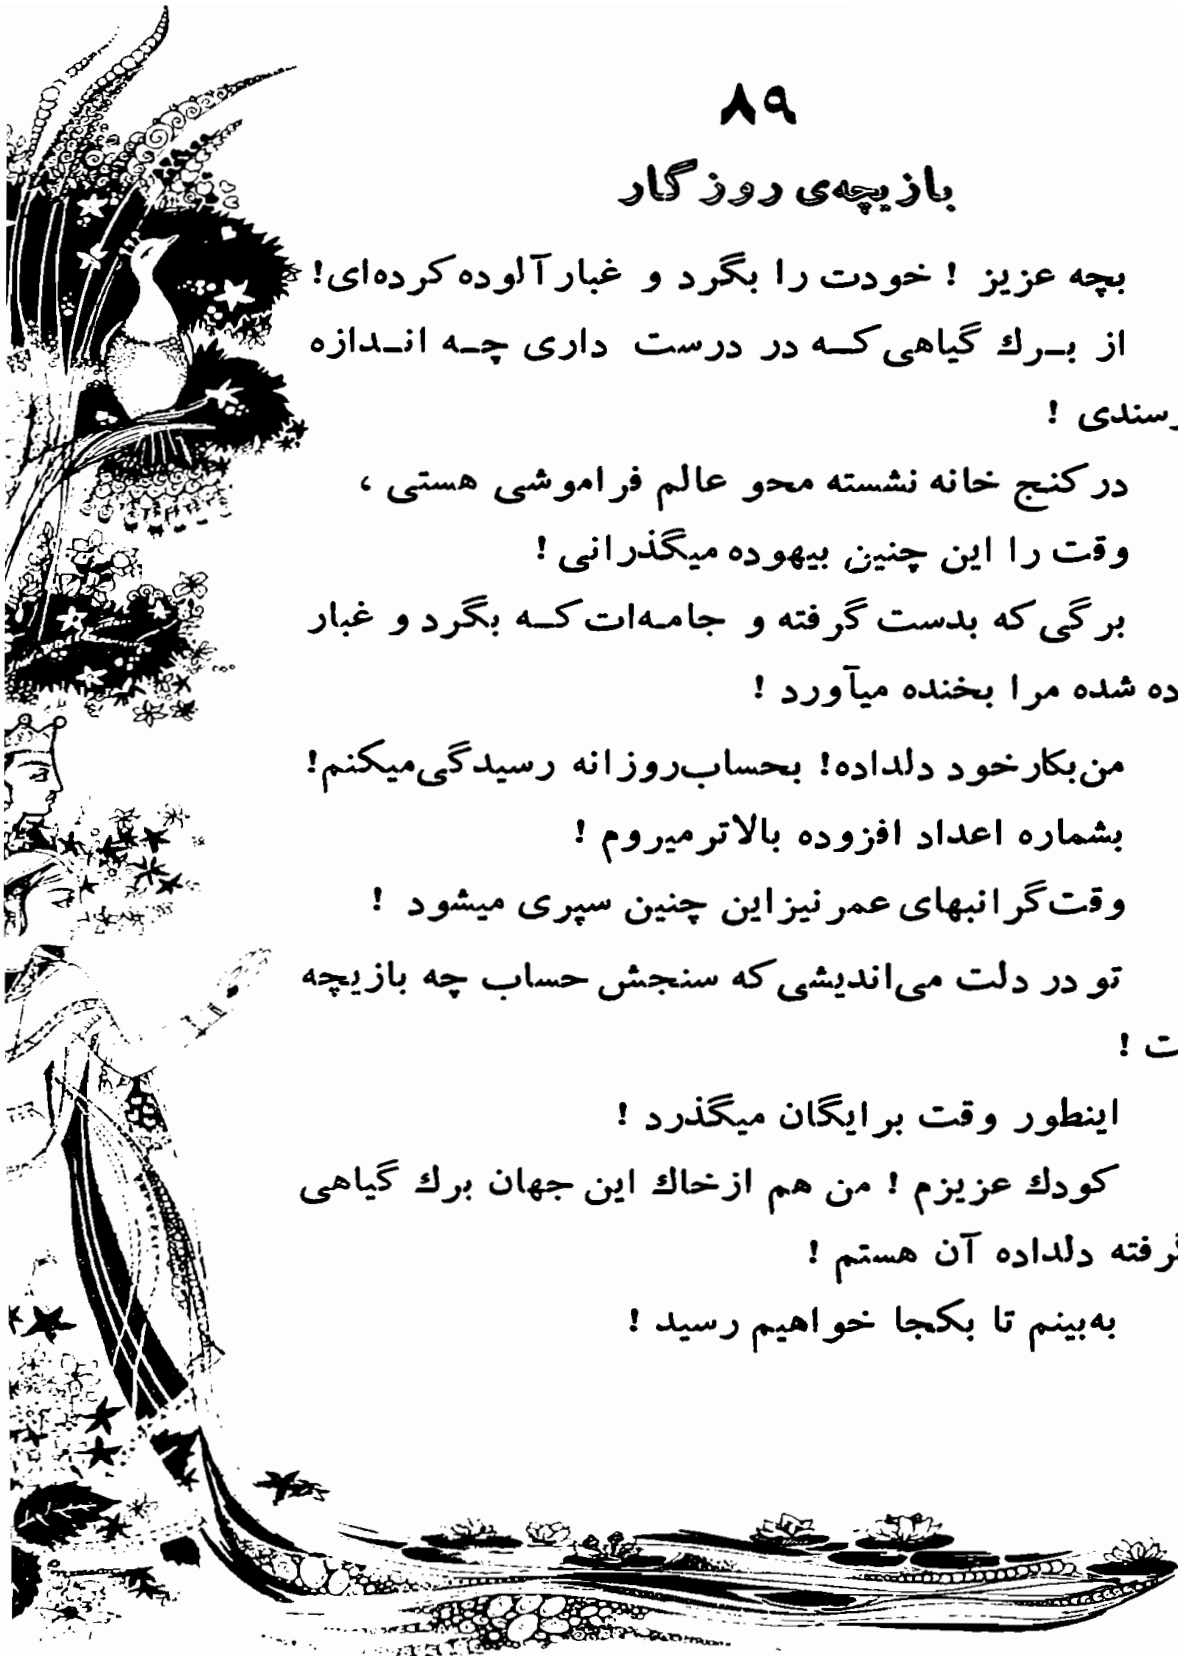 ۸۹
بازیچه‌ی روزگار
بچه عزیز ! خودت را بگرد و غبار آلوده کرده‌ای!
از بـرك گیاهی کـه در درست داری چـه انـدازه
رسندی !
در کنج خانه نشسته محو عالم فراموشی هستی ،
وقت را این چنین بیهوده میگذرانی !
برگی که بدست گرفته و جامـه‌ات کـه بگرد و غبار
ده شده مرا بخنده میآورد !
من بکار خود دلداده! بحساب روزانه رسیدگی میکنم!
بشماره اعداد افزوده بالاتر میروم !
وقت گرانبهای عمر نیز این چنین سپری میشود !
تو در دلت می‌اندیشی که سنجش حساب چه بازیچه
ت !
اینطور وقت برایگان میگذرد !
کودك عزیزم ! من هم از خاك این جهان برك گیاهی
گرفته دلداده آن هستم !
به‌بینم تا بکجا خواهیم رسید !